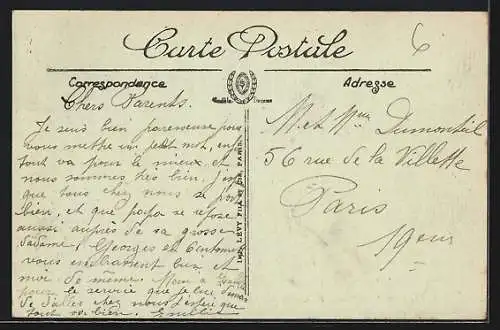 Carte Postale
6
Correspondance
Adresse
Chers Parents.
Je suis bien paresseuse pour
vous mettre un petit mot, enfin
tout va pour le mieux et
nous sommes très bien. J'espère
que tous chez nous se porte
bien, et que papa se repose
aussi auprès de sa grosse
Georges et
vous embrassent bien et
moi de même.
pour le service que
de chez nous
tout va bien. Emilie
LEVY FILS ET CIE, PARIS
M. et Mme Dumonteil
56 rue de la Villette
Paris
19eme